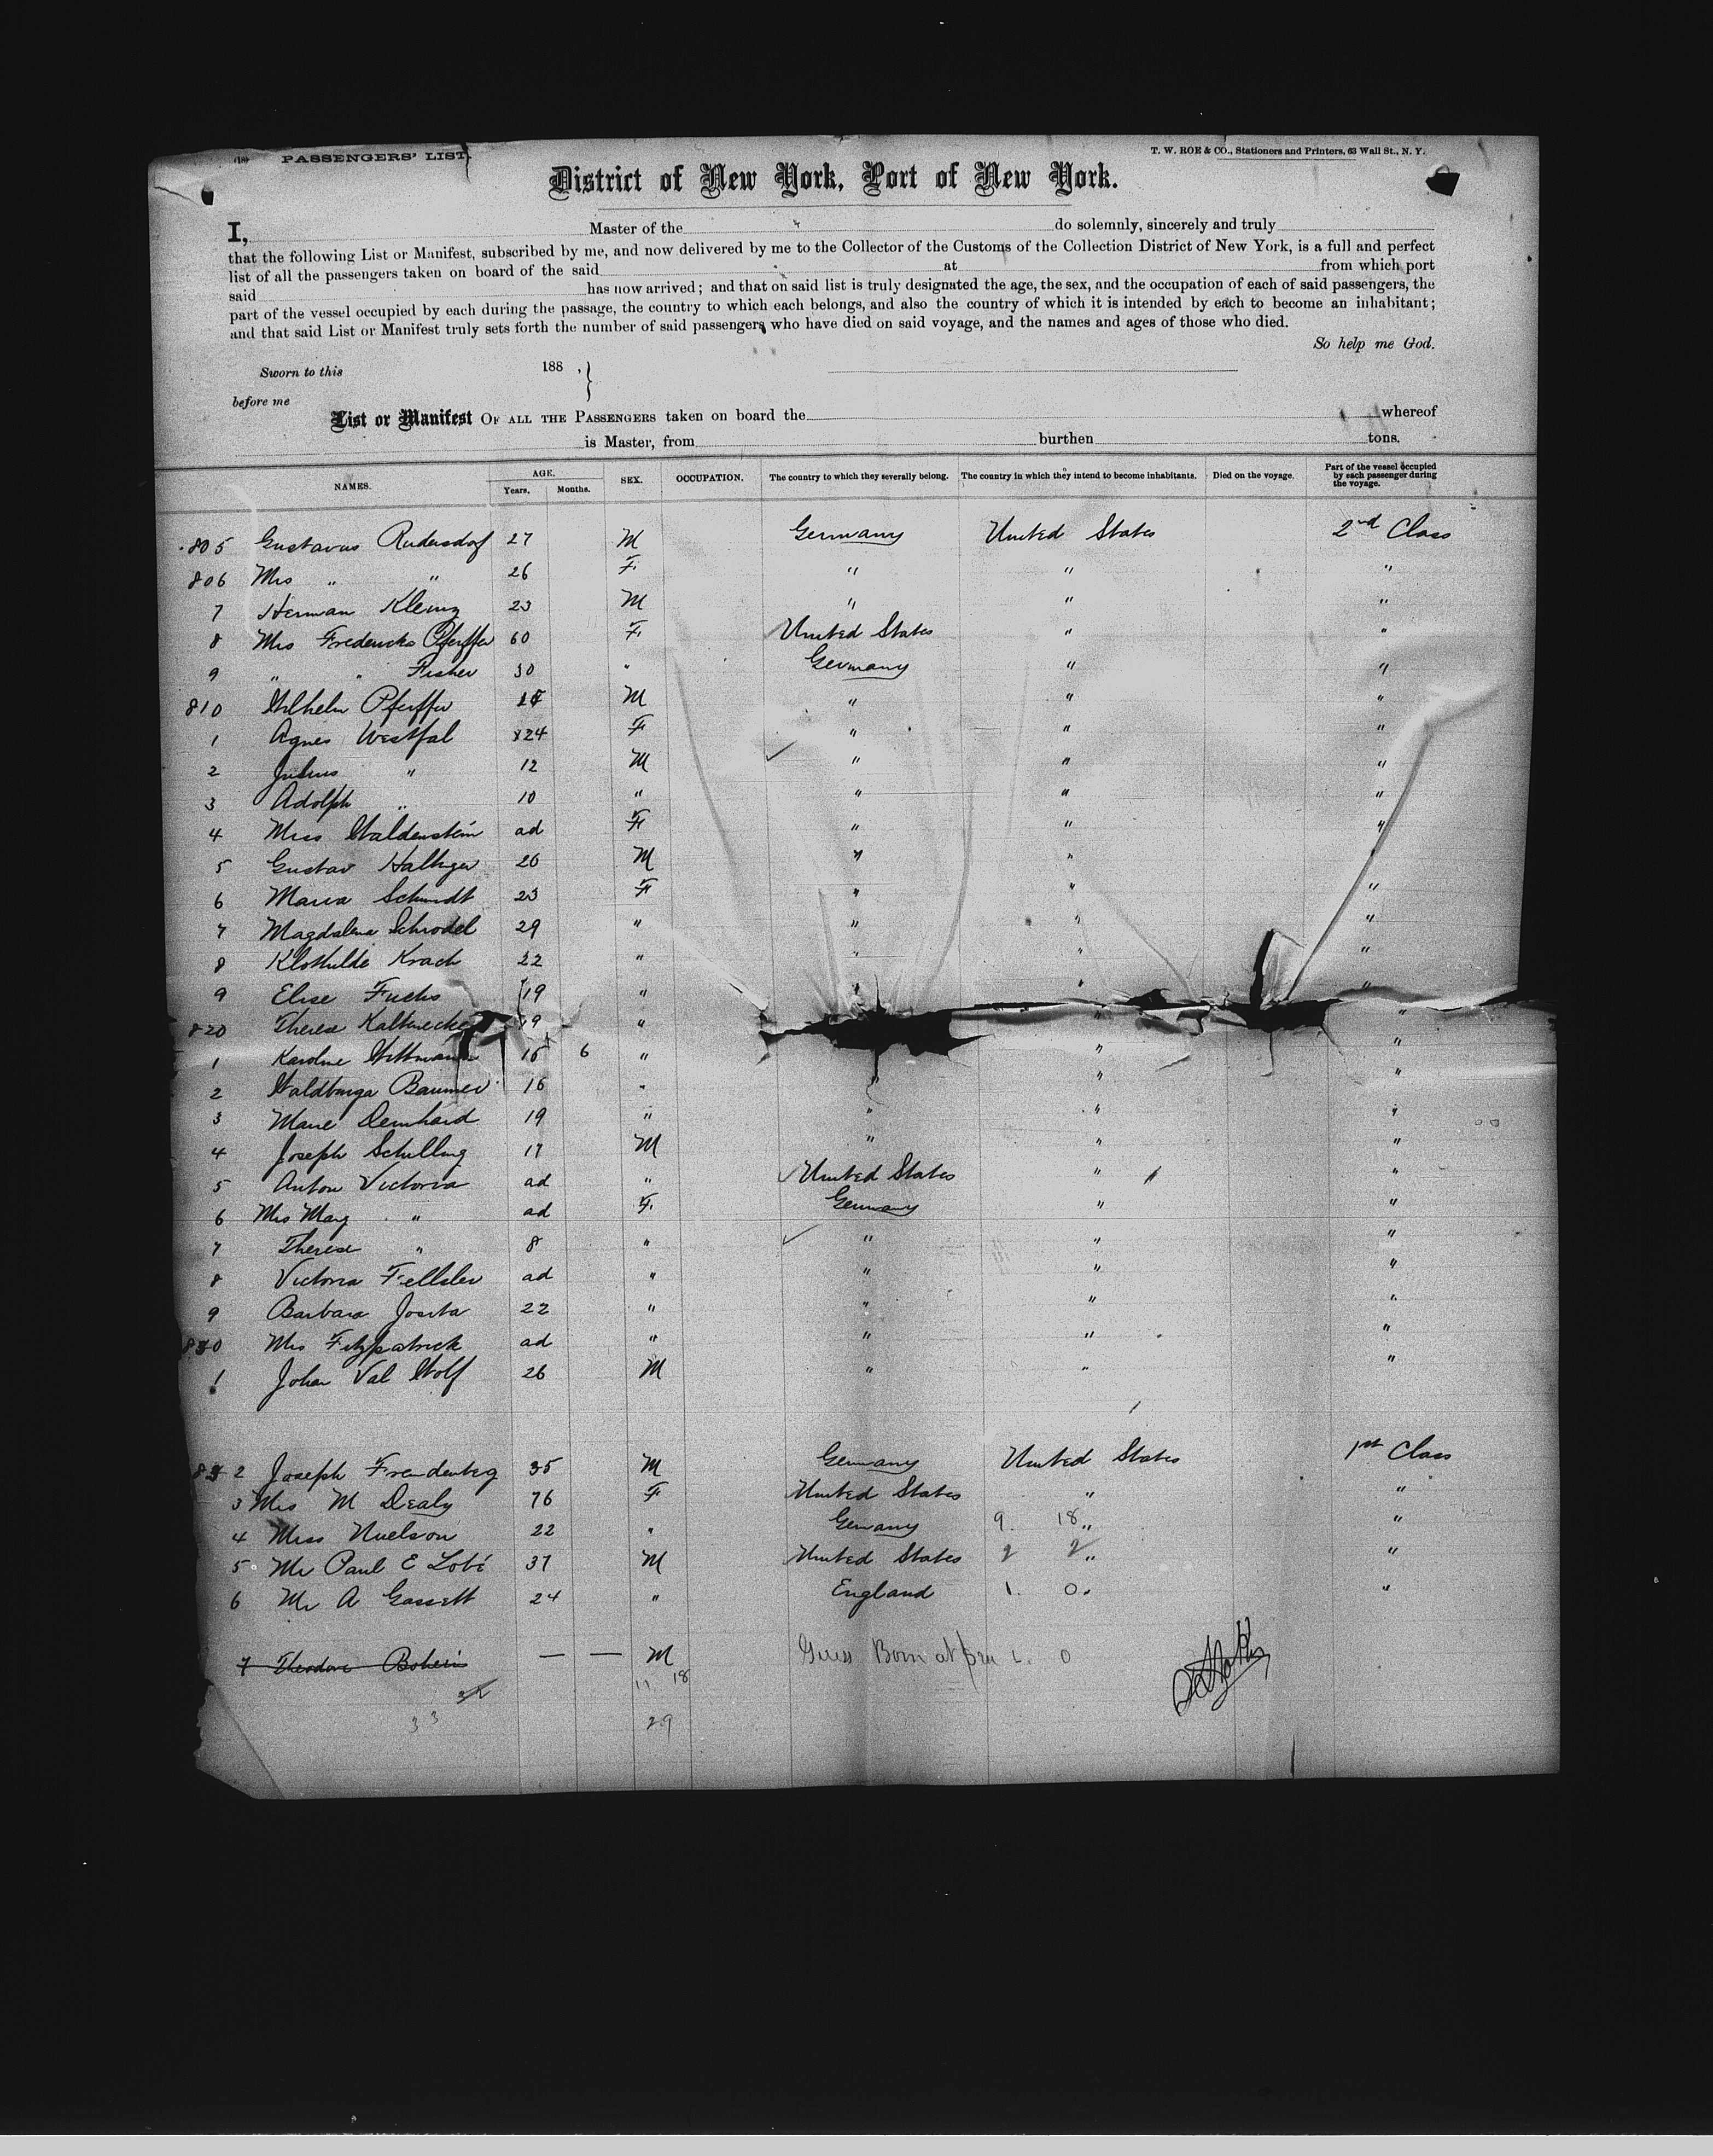 (18) PASSENGERS' LIST.
T. W. ROE & CO., Stationers and Printers, 63 Wall St., N. Y.
District of New York, Port of New York.
I, Master of the do solemnly, sincerely and truly
that the following List or Manifest, subscribed by me, and now delivered by me to the Collector of the Customs of the Collection District of New York, is a full and perfect
list of all the passengers taken on board of the said at from which port
said has now arrived; and that on said list is truly designated the age, the sex, and the occupation of each of said passengers, the
part of the vessel occupied by each during the passage, the country to which each belongs, and also the country of which it is intended by each to become an inhabitant;
and that said List or Manifest truly sets forth the number of said passengers who have died on said voyage, and the names and ages of those who died.
So help me God.
Sworn to this 188 , }
before me
List or Manifest OF ALL THE PASSENGERS taken on board the whereof
is Master, from burthen tons.
NAMES. AGE. Years. Months. SEX. OCCUPATION. The country to which they severally belong. The country in which they intend to become inhabitants. Died on the voyage. Part of the vessel occupied by each passenger during the voyage.
805 Gustavus Rudersdorf 27 M Germany United States 2nd Class
806 Mrs " " 26 F " " "
7 Herman 23 M " " "
8 Mrs Fredericka Pfeiffer 60 F United States " "
9 " " Fisher 30 " Germany " "
810 Wilhelm Pfeiffer M " " "
1 Agnes Westfal 24 F " " "
2 Julius " 12 M " " "
3 Adolph " 10 " " " "
4 Miss Waldenstein ad F " " "
5 Gustav 20 M " " "
6 Maria Schmidt 23 F " " "
7 Magdalena Schrodel 29 " " " "
8 Klothilde Krach 22 " " " "
9 Elise Fuchs 19 " " " "
820 Therese 19 " " "
1 Karoline Wittmann 15 6 " " "
2 Waldburga Baumer 16 " " " "
3 Marie Dernhard 19 " " " "
4 Joseph Schilling 17 M " " "
5 Anton Victoria ad " United States " "
6 Mrs Mary " ad F Germany " "
7 Therese " 8 " " " "
8 Victoria ad " " " "
9 Barbara Josita 22 " " " "
830 Mrs Fitzpatrick ad " " " "
1 Johan Val Wolf 26 M " " "
832 Joseph Freudenberg 35 M Germany United States 1st Class
3 Mrs M Dealy 76 F United States " "
4 Miss Nuelson 22 " Germany 9. 18 " "
5 Mr Paul E Lobé 37 M United States 2 2 " "
6 Mr A Gassett 24 " England 1. 0 " "
7 Theodore — — M Born at 1. 0
11 18
33 29